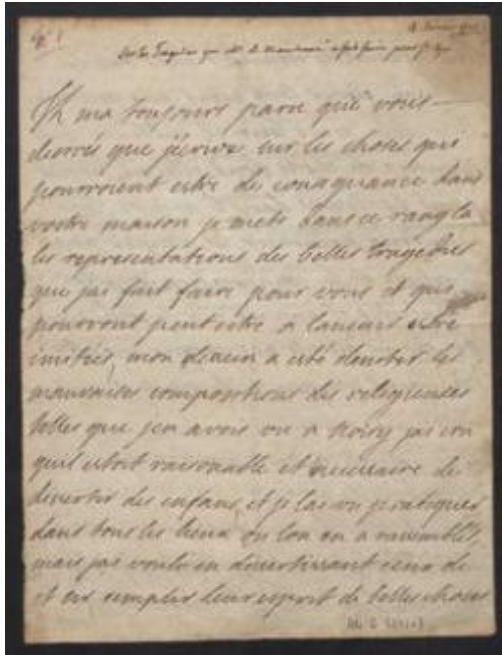 Il ma tousjours paru que vous
desirés que jécrive sur les choses qui
pourroient estre de consequance dans
vostre maison je mets dans ce rang la
les representations des belles tragedies
que jai fait faire pour vous et qui
pourront peut estre a lavenir estre
imitées, mon dessein a esté deviter les
mauvaises compositions des religieuses
telles que jen avois vu a noisy jai cru
quil estoit raisonable et necessaire de
divertir des enfans, et je lai vu pratiquer
dans tous les lieux ou lon en a rassemblé,
mais jai voulu en divertissant ceux de
st cir remplir leur esprit de belles choses